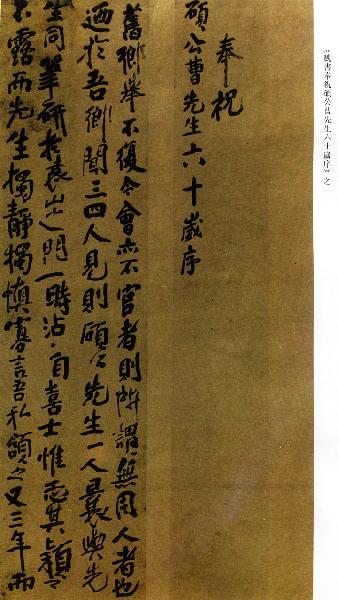 書奉祝碩公曹先生六十歲序》之一
奉祝
碩公曹先生六十歲序
舊鄉舉不復令會亦不官者則所謂無用人者也
迺於吾鄉聞三四人見則碩公先生一人曩與先
生同筆研於袁山之門一時沾沾自喜士惟恐其穎之
不露而先生獨靜獨慎寡言吾私頷之又三年而